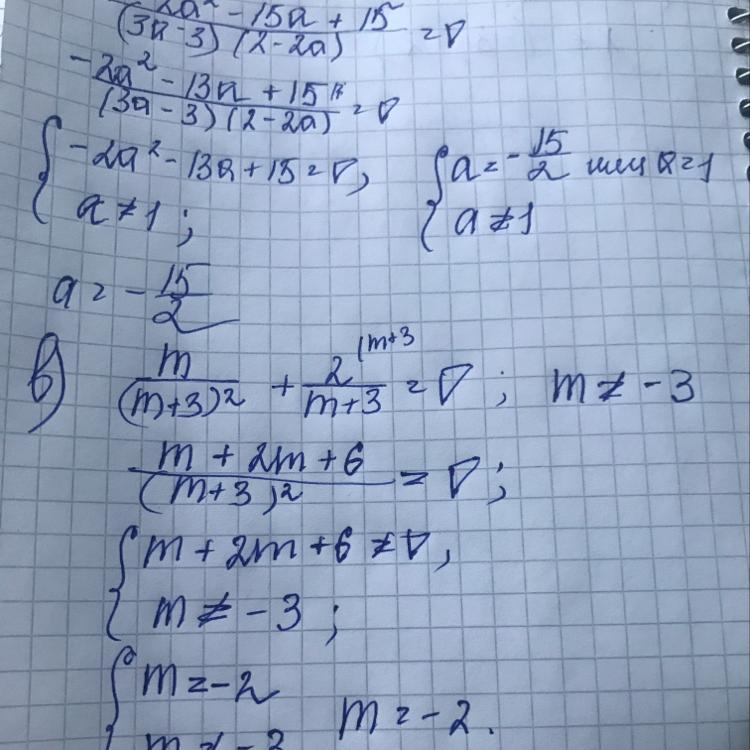 2a² - 15a + 15 / (3a - 3)(2 - 2a) = 0
-2a² - 13a + 15 / (3a - 3)(2 - 2a) = 0
{ -2a² - 13a + 15 = 0, { a = -15/2 или a = 1
a ≠ 1 ; a ≠ 1
a = -15/2
в) m/(m+3)² + 2 (m+3 / m+3 = 0 ; m ≠ -3
m + 2m + 6 / (m+3)² = 0 ;
{ m + 2m + 6 ≠ 0,
m ≠ -3 ;
{ m = -2 m = -2.
m ≠ -3